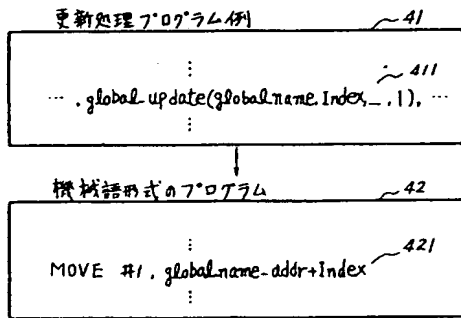 更新処理プログラム例
41
⋮
411
… , global_update(globalname, Index, _, 1), …
⋮
機械語形式のプログラム
42
⋮
421
MOVE #1, globalname-addr+Index
⋮